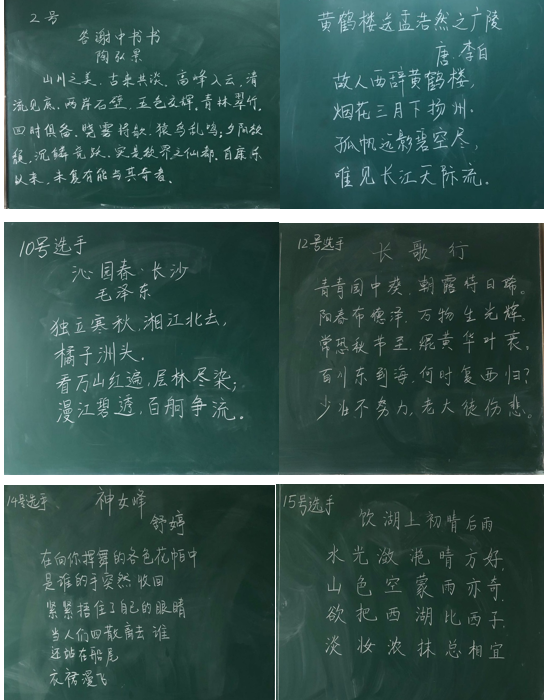 2号
答谢中书书
陶弘景
山川之美，古来共谈，高峰入云，清
流见底，两岸石壁，五色交辉，青林翠竹，
四时俱备，晓雾将歇，猿鸟乱鸣；夕阳欲
颓，沉鳞竞跃，实是欲界之仙都，自康乐
以来，未复有能与其奇者。
黄鹤楼送孟浩然之广陵
唐·李白
故人西辞黄鹤楼，
烟花三月下扬州。
孤帆远影碧空尽，
唯见长江天际流。
10号选手
沁园春·长沙
毛泽东
独立寒秋，湘江北去，
橘子洲头。
看万山红遍，层林尽染；
漫江碧透，百舸争流。
12号选手
长歌行
青青园中葵，朝露待日晞。
阳春布德泽，万物生光辉。
常恐秋节至，焜黄华叶衰。
百川东到海，何时复西归？
少壮不努力，老大徒伤悲。
14号选手
神女峰
舒婷
在向你挥舞的各色花帕中
是谁的手突然收回
紧紧捂住了自己的眼睛
当人们四散离去 谁
还站在船尾
衣裙漫飞
15号选手
饮湖上初晴后雨
水光潋滟晴方好，
山色空蒙雨亦奇。
欲把西湖比西子，
淡妆浓抹总相宜